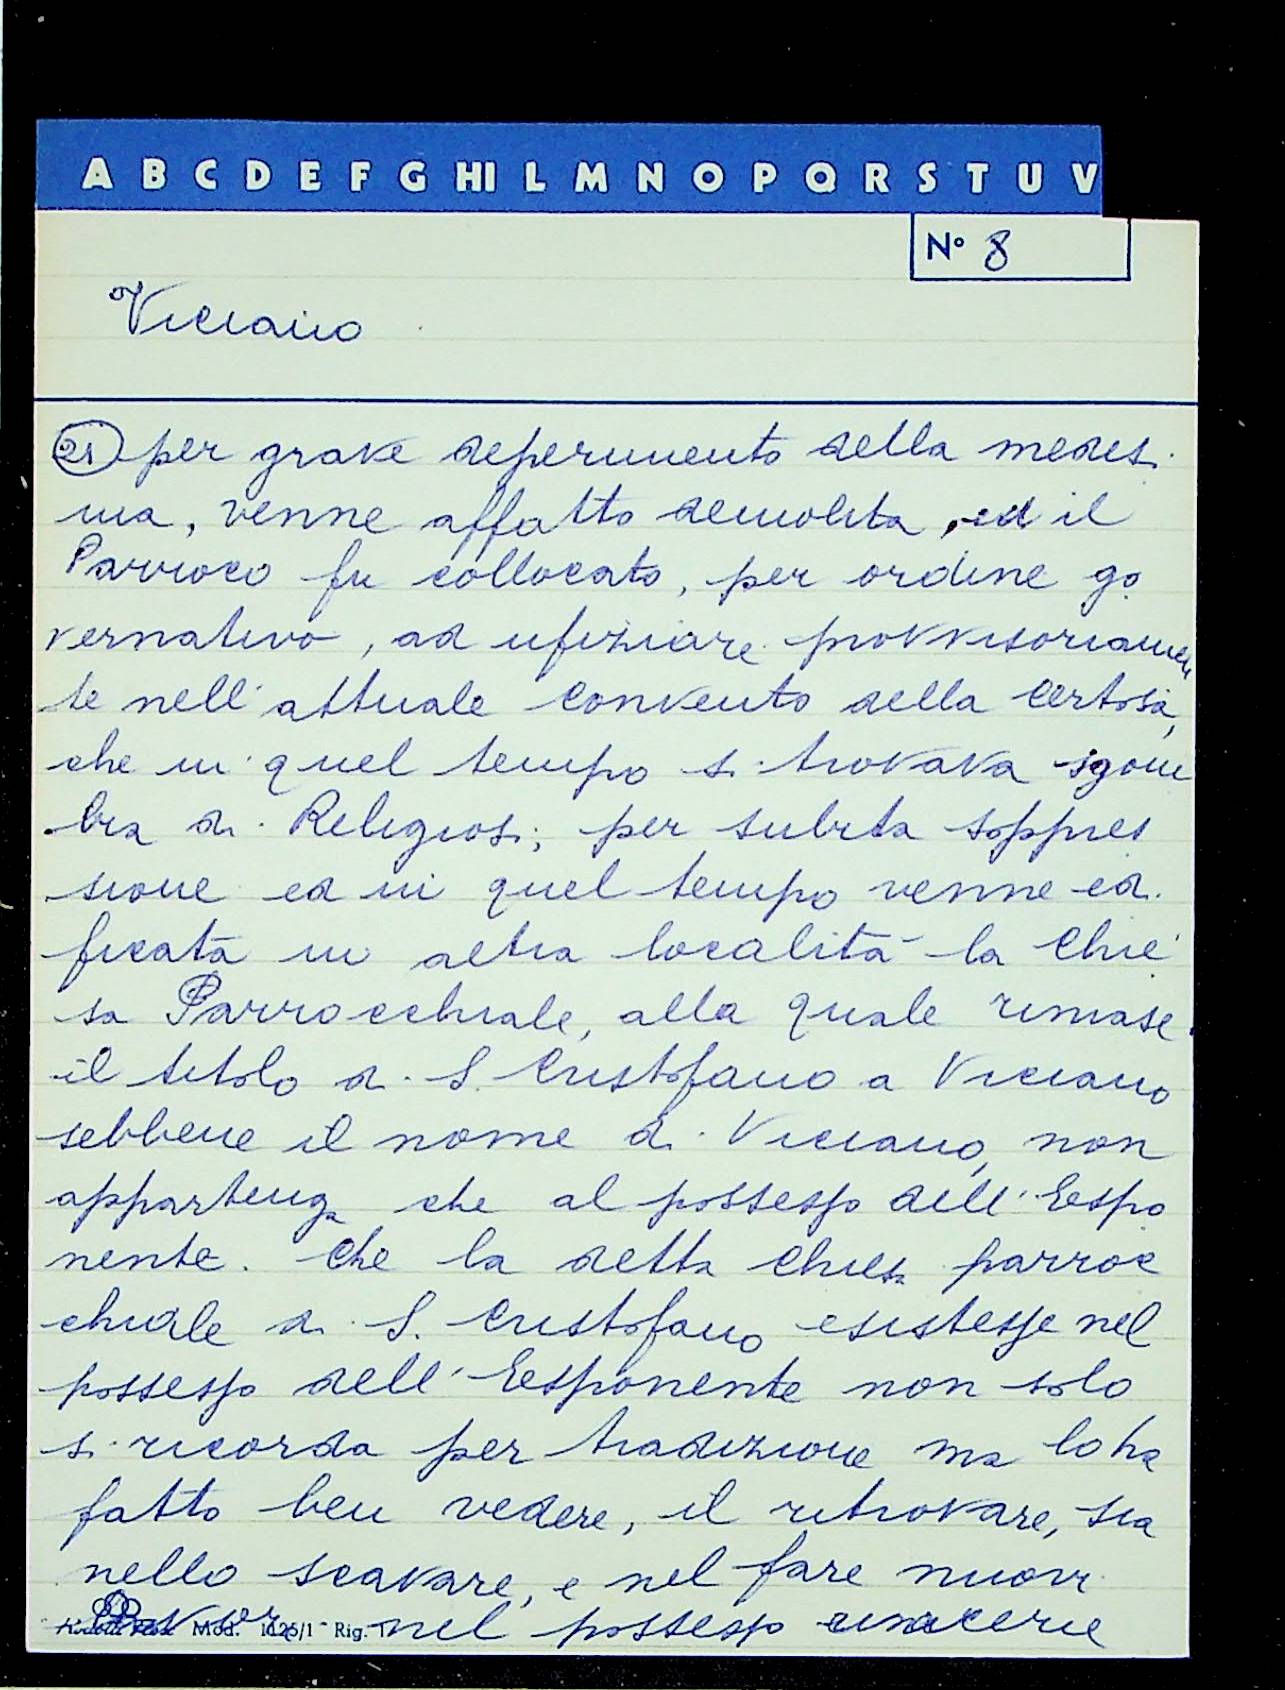 A B C D E F G HI L M N O P Q R S T U V
N° 8
Viciano
21 per grave deperimento della medesi
ma, venne affatto demolita, ed il
Parroco fu collocato, per ordine go
vernativo, ad ufiziare provvisoriamen
te nell'attuale convento della Certosa,
che in quel tempo si trovava sgom
bra di Religiosi; per subita soppres
sione ed in quel tempo venne edi
ficata in altra località la Chie
sa Parrocchiale, alla quale rimase
il titolo di S. Cristofano a Viciano
sebbene il nome di Viciano, non
appartenga che al possesso dell'Espo
nente. Che la detta Chiesa parroc
chiale di S. Cristofano esistesse nel
possesso dell'Esponente non solo
si ricorda per tradizione ma lo ha
fatto ben vedere, il ritrovare, sia
nello scavare, e nel fare nuovi
nel possesso macerie
Mod. 1125/1 Rig. 1